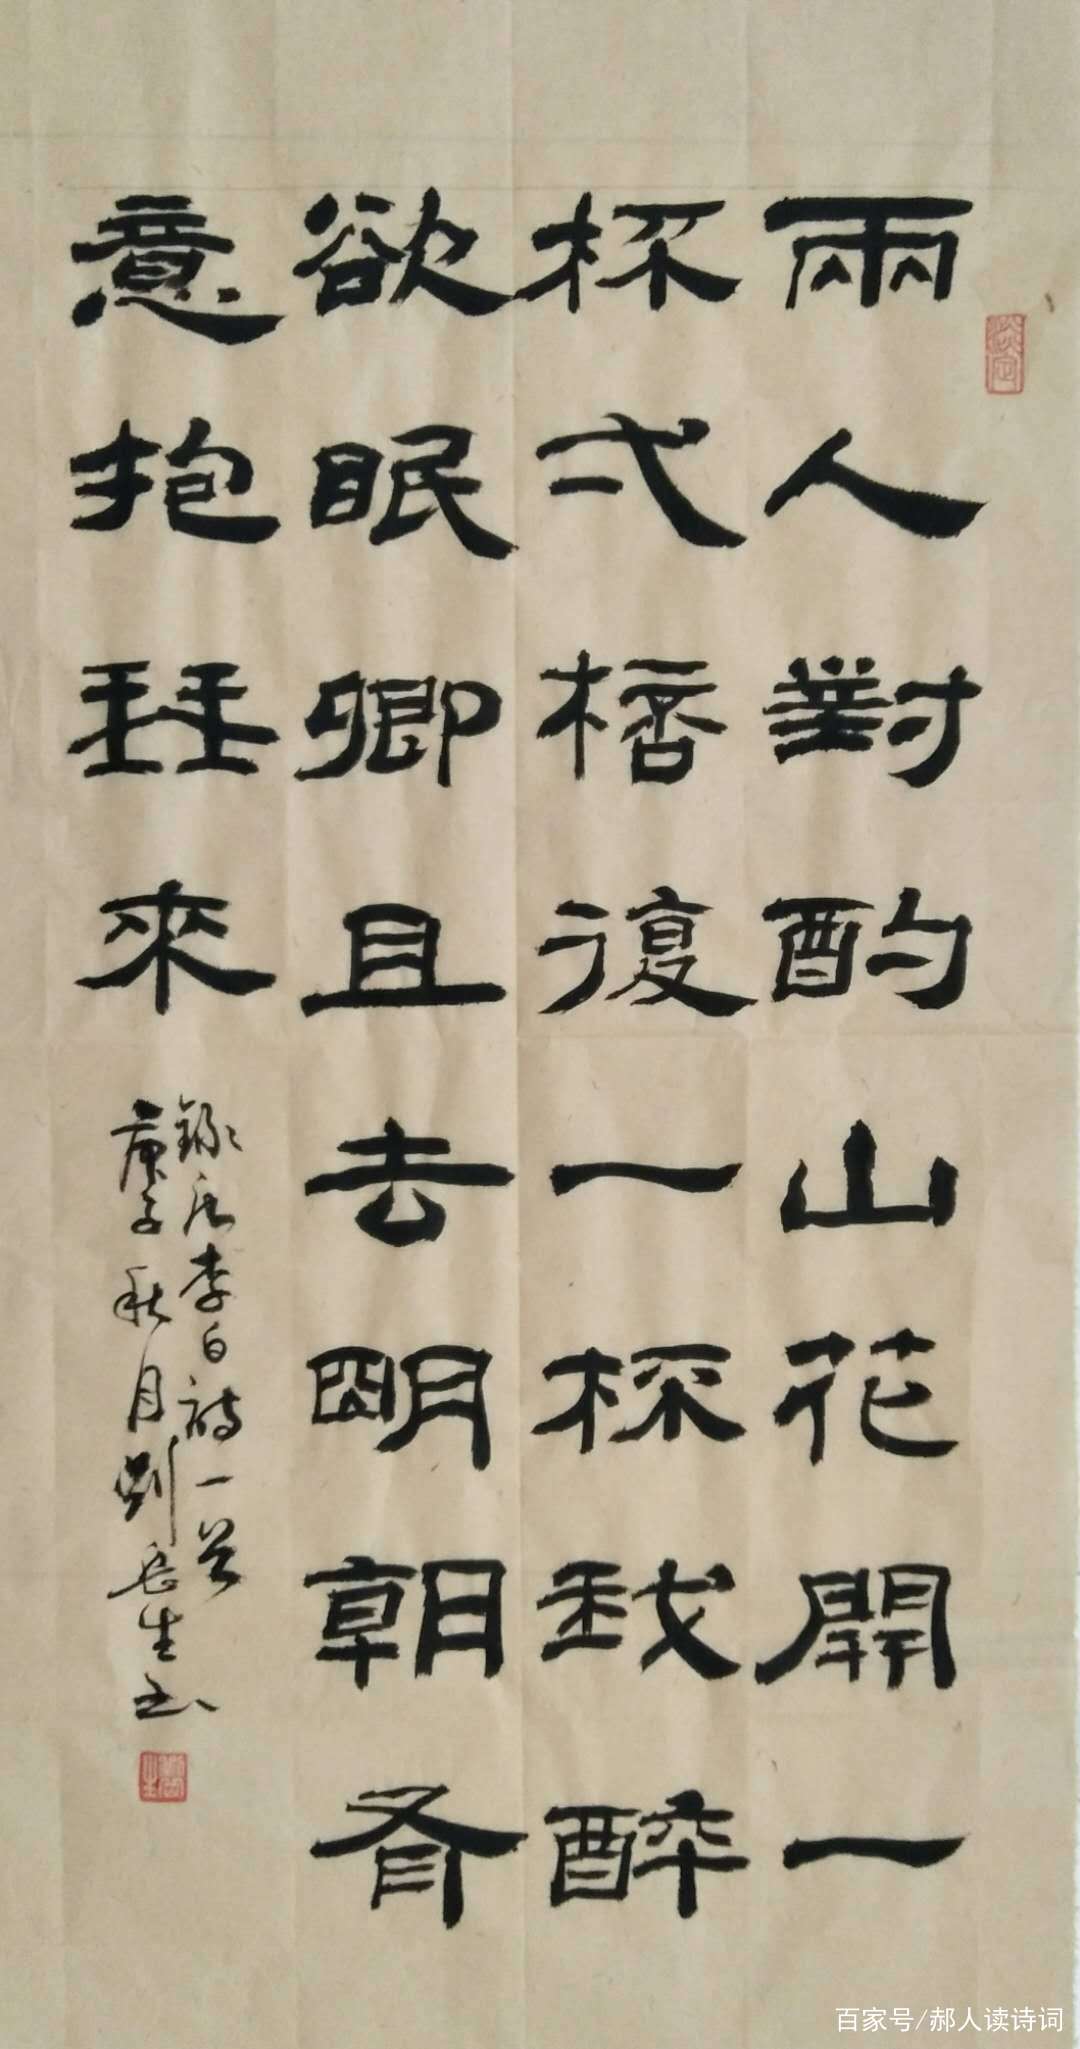 兩人對酌山花開一
杯弍桮復一杯我醉
欲眠卿且去明朝有
意抱琴來
錄唐李白詩一首
庚子秋月劉長生书
百家号/郝人读诗词